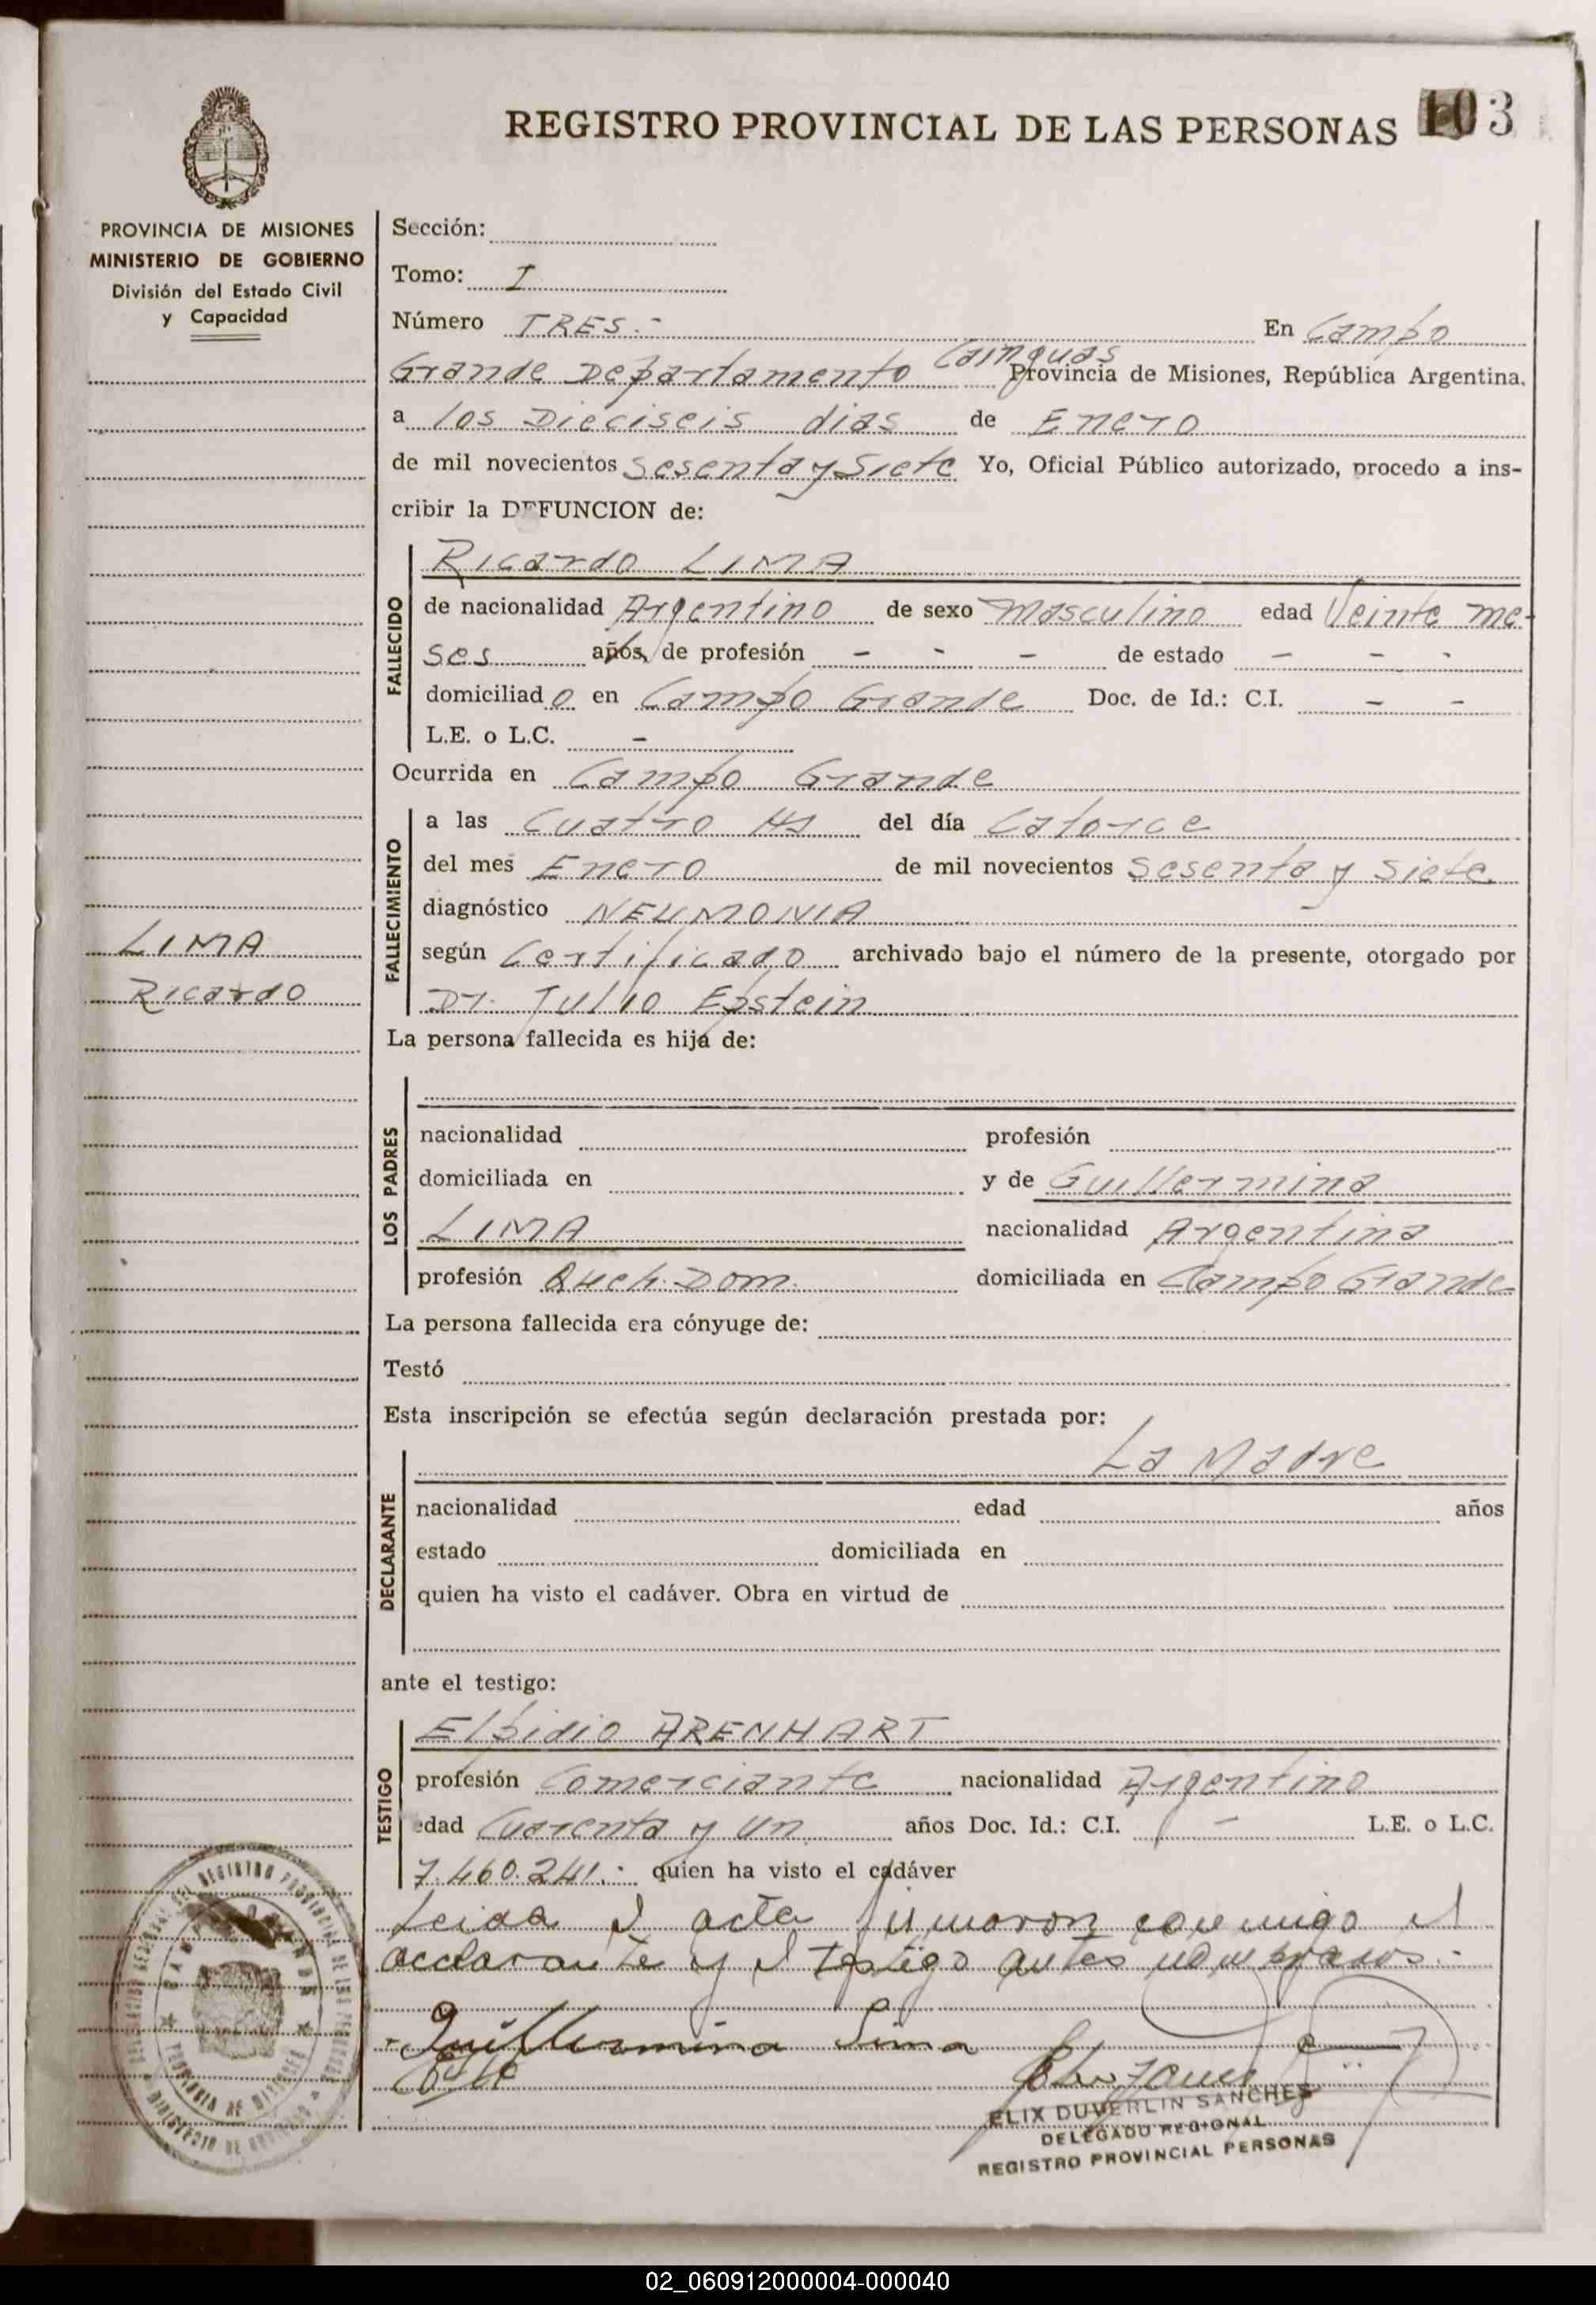 REGISTRO PROVINCIAL DE LAS PERSONAS 103
PROVINCIA DE MISIONES
MINISTERIO DE GOBIERNO
División del Estado Civil
y Capacidad
Sección:
Tomo: I
Número TRES.- En Campo
Grande Departamento Cainguas Provincia de Misiones, República Argentina.
a los Dieciseis dias de Enero
de mil novecientos Sesenta y Siete Yo, Oficial Público autorizado, procedo a ins-
cribir la DEFUNCION de:
FALLECIDO
Ricardo LIMA
de nacionalidad Argentino de sexo masculino edad Veinte me-
ses años, de profesión - - - de estado - - -
domiciliado en Campo Grande Doc. de Id.: C.I. - -
L.E. o L.C. -
Ocurrida en Campo Grande
FALLECIMIENTO
a las Cuatro Hs del día Catorce
del mes Enero de mil novecientos Sesenta y Siete
diagnóstico NEUMONIA
según Certificado archivado bajo el número de la presente, otorgado por
Dr. Julio Epstein
LIMA
Ricardo
La persona fallecida es hija de:
LOS PADRES
nacionalidad profesión
domiciliada en y de Guillermina
LIMA nacionalidad Argentina
profesión Queh. Dom. domiciliada en Campo Grande
La persona fallecida era cónyuge de:
Testó
Esta inscripción se efectúa según declaración prestada por:
La Madre
DECLARANTE
nacionalidad edad años
estado domiciliada en
quien ha visto el cadáver. Obra en virtud de
ante el testigo:
TESTIGO
Elpidio ARENHART
profesión Comerciante nacionalidad Argentino
edad Cuarenta y Un años Doc. Id.: C.I. - L.E. o L.C.
7.460.241.- quien ha visto el cadáver
Leida el acta firmaron conmigo el
declarante y el testigo antes nombrados.-
Guillermina Lima
ELIX DUVERLIN SANCHES
DELEGADO REGIONAL
REGISTRO PROVINCIAL PERSONAS
02_060912000004-000040